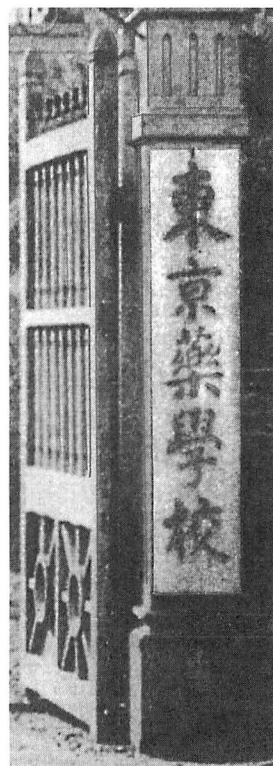 東京藥學校